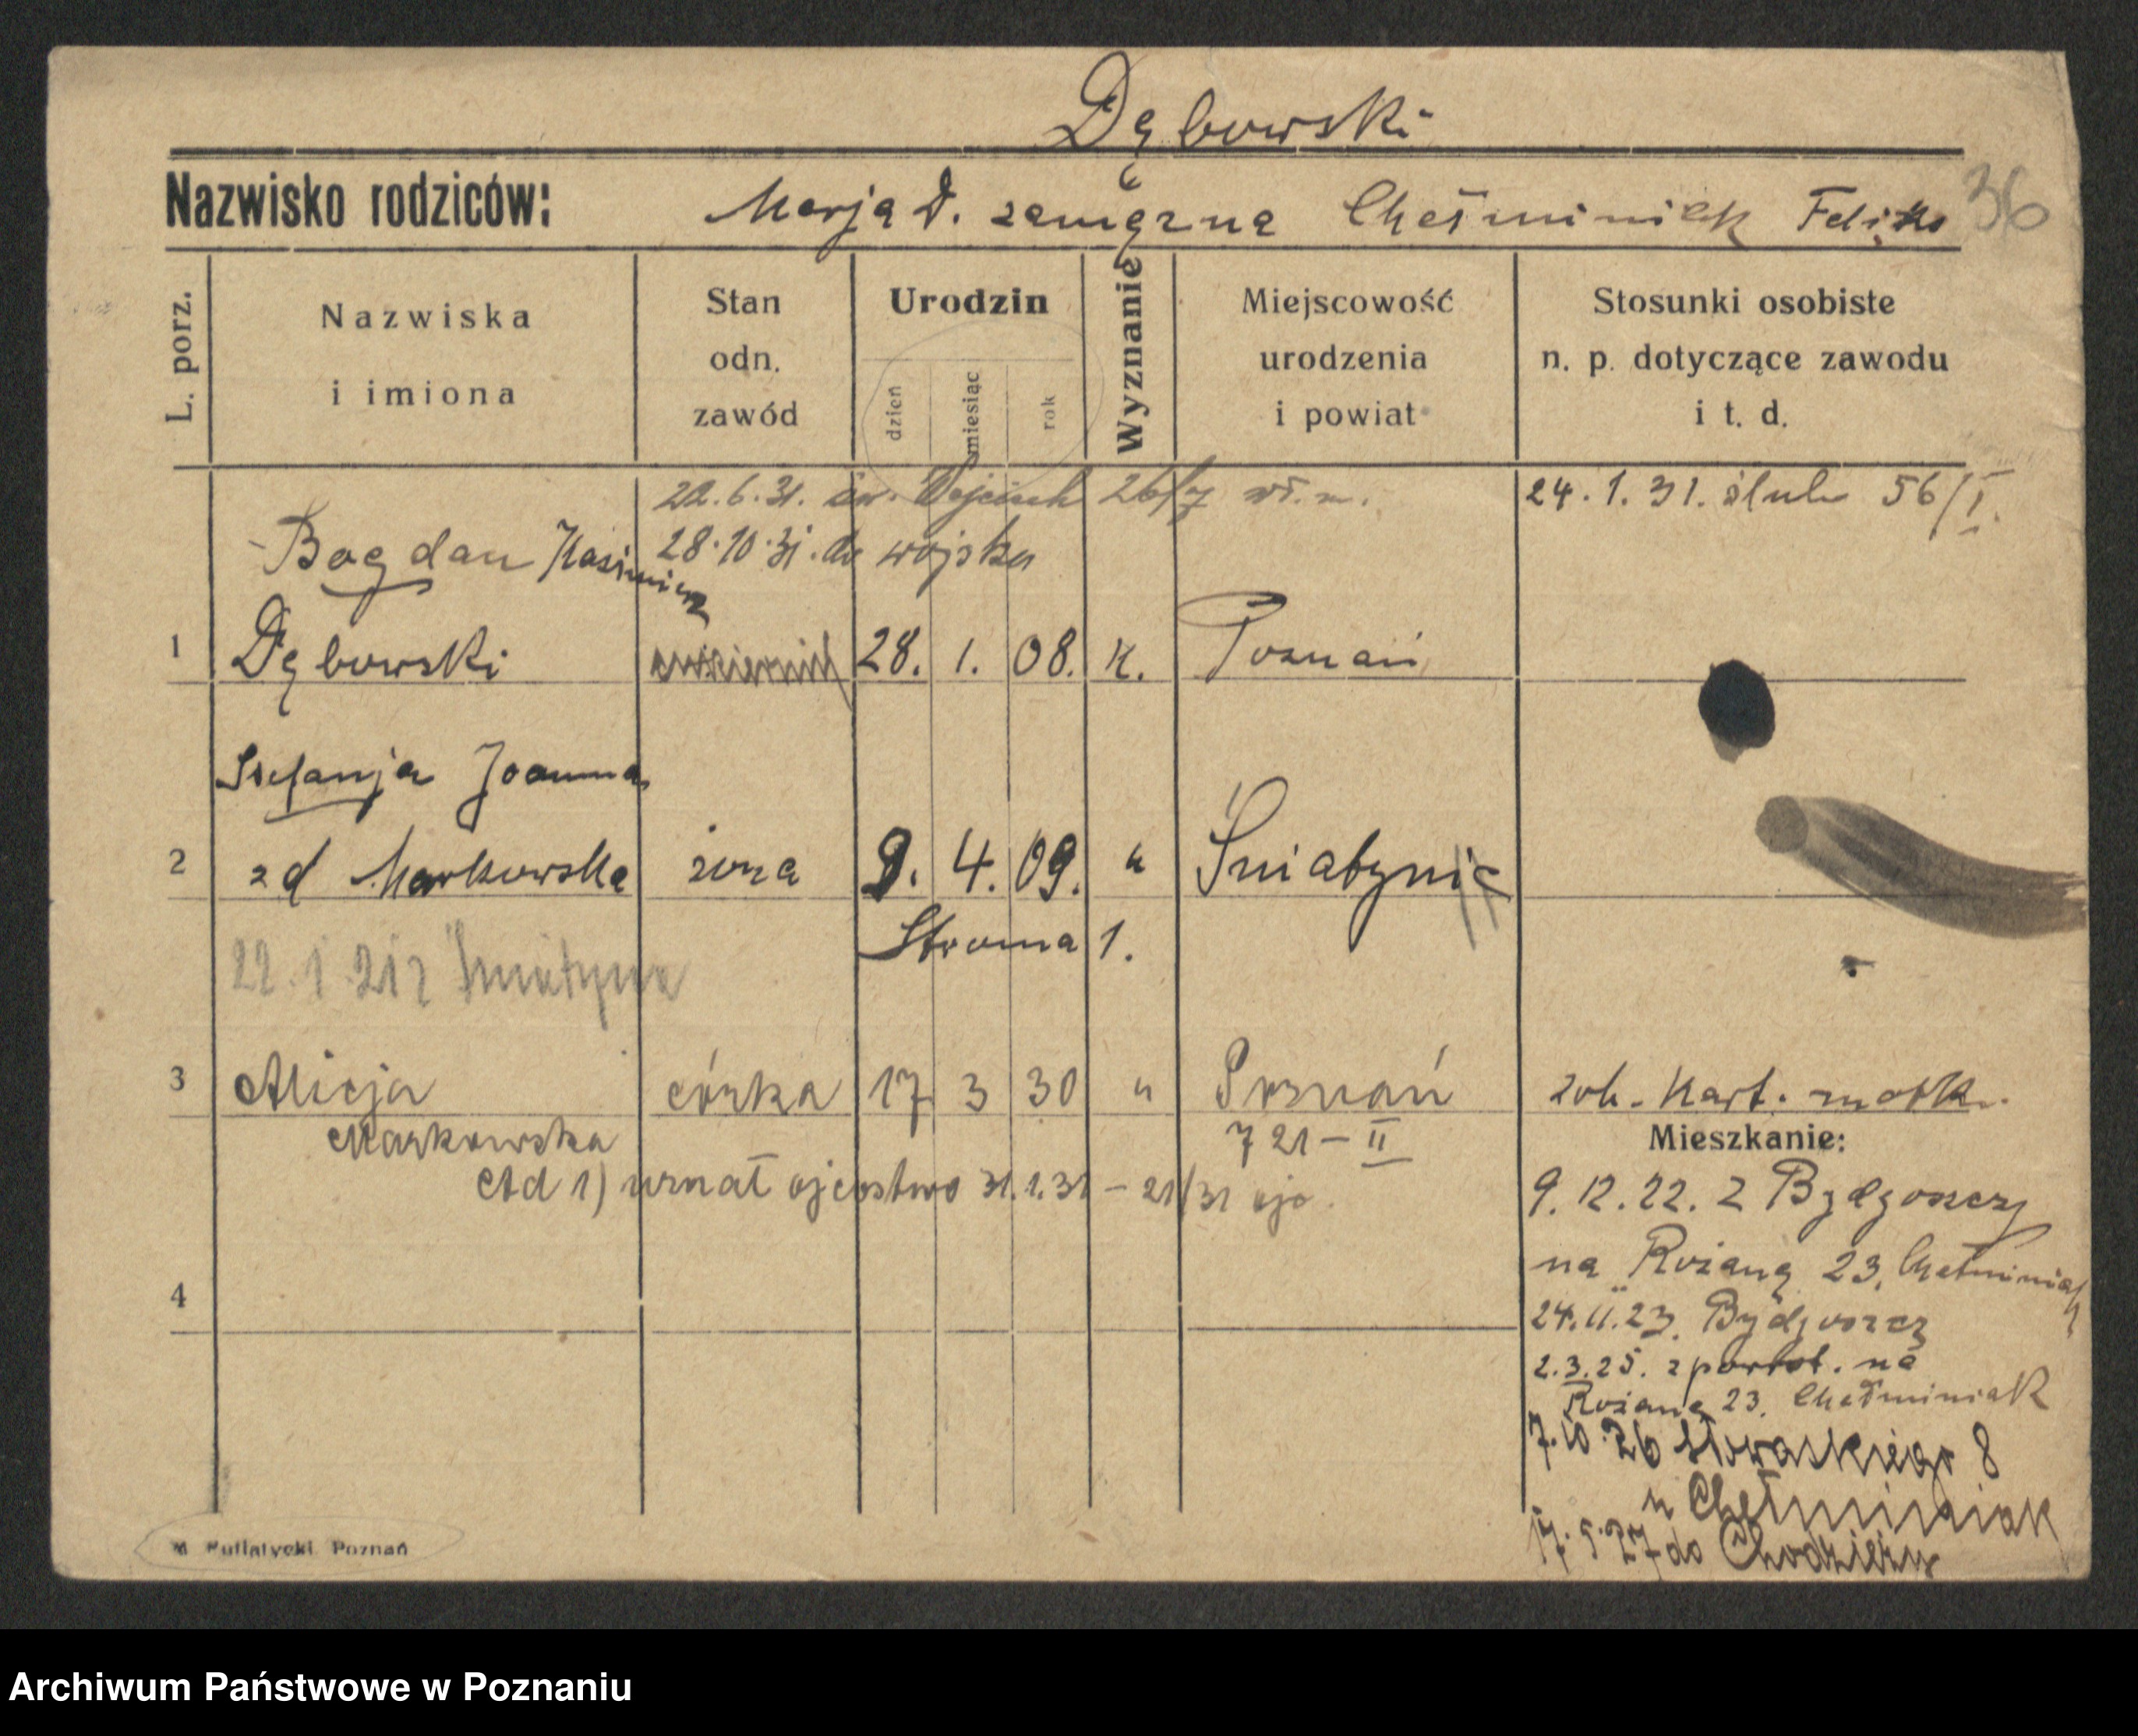 Dębowski
Nazwisko rodziców: Marja D. zamężna Chełminiak Feliks 36
L. porz.
Nazwiska
i imiona
Stan
odn.
zawód
Urodzin
dzień
miesiąc
rok
Wyznanie
Miejscowość
urodzenia
i powiat
Stosunki osobiste
n. p. dotyczące zawodu
i t. d.
22.6.31. św. Wojciech 26/7 wł. m.
24.1.31. ślub 56/I.
28.10.31. do wojska
Bogdan Kasimierz
1 Dębowski 28. 1. 08. K. Poznań
Stefanja Joanna
2 zd Markowska żona 9. 4. 09. " Śniatynia
Stroma 1.
22.1.21 z Śniatynia
3 Alicja córka 17 3 30 " Poznań zob. Kart. matk.
Markowska 721-II
Mieszkanie:
ad 1) uznał ojcostwo 31.1.31 - 21/31 ojc.
9.12.22. z Bydgoszczy
na Różaną 23, Chełminiak
4
24.11.23. Bydgoszcz
2.3.25. z powrot. na
Różaną 23. Chełminiak
7.10.26 Słowackiego 8
u Chełminiak
17.9.27 do Chodzieży
Putiatycki Poznań
Archiwum Państwowe w Poznaniu